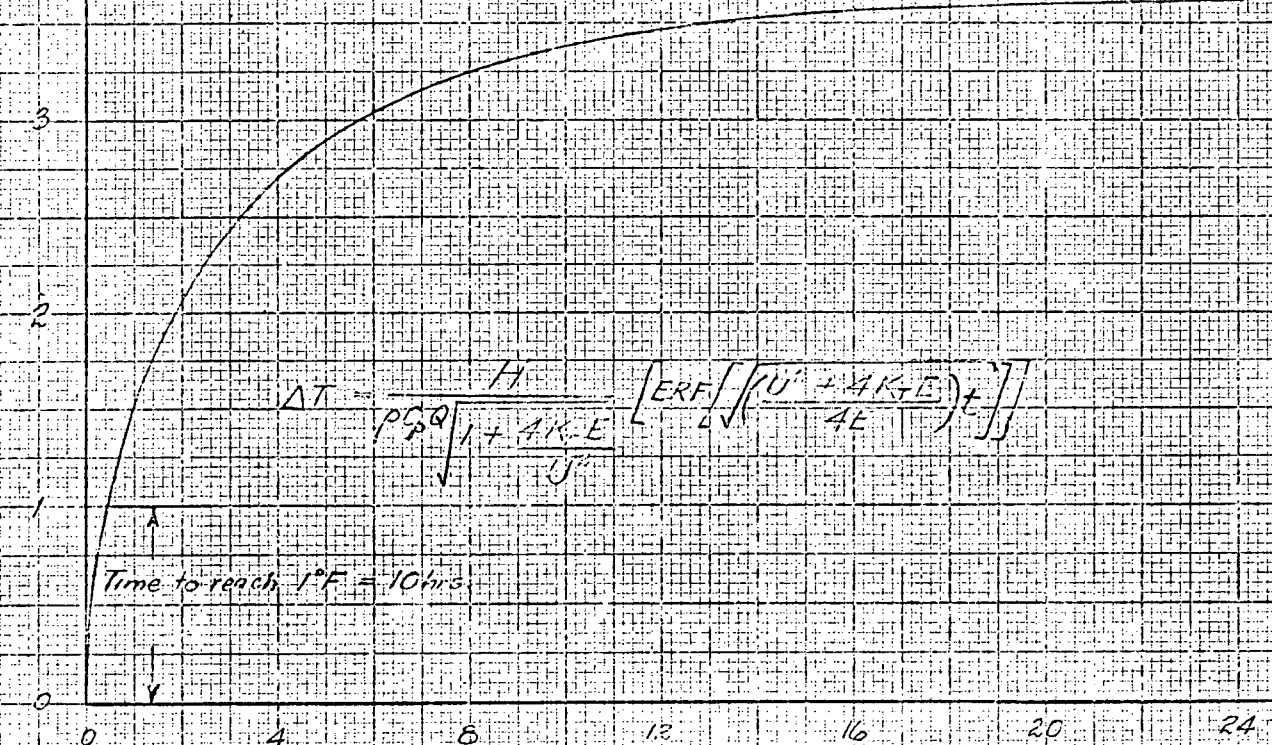 3
2
ΔT = H / ρCpQ√(1 + 4K E / U) [ERF[√((U + 4KTE / 4E)t)]]
1
Time to reach 1°F = 10 hrs.
0
0 4 8 12 16 20 24